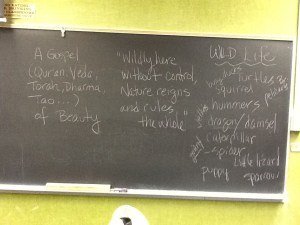 A Gospel
(Quran, Veda,
Torah, Dharma,
Tao...)
of Beauty
"Wildly here
without control,
Nature reigns
and rules
the whole"
WILD Life
Turtles
squirrel
hummers
dragon/damsel
caterpillar
spider
little lizard
puppy
sparrow